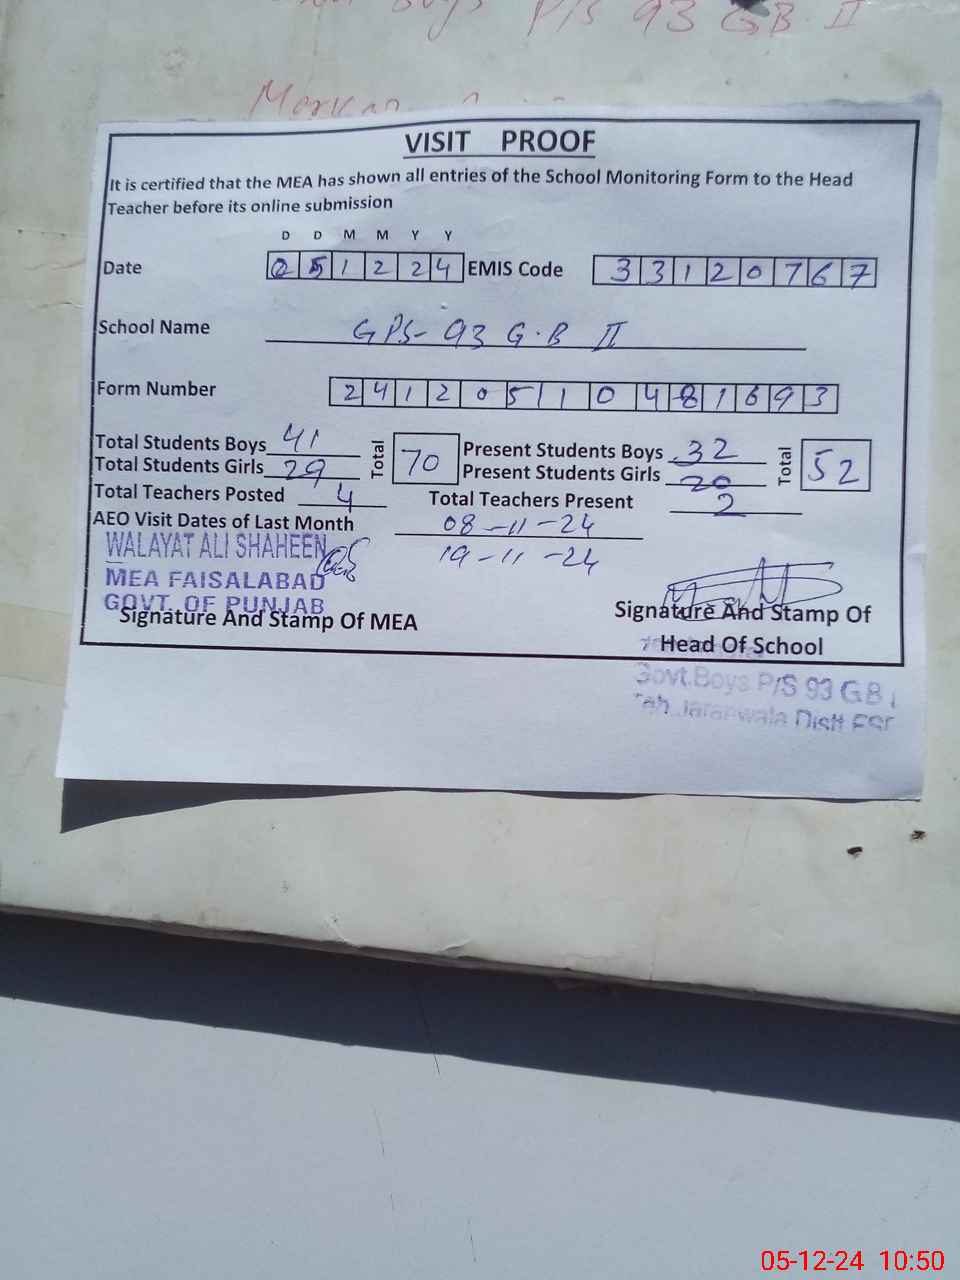 Boys P/S 93 GB II
VISIT PROOF
It is certified that the MEA has shown all entries of the School Monitoring Form to the Head
Teacher before its online submission
D D M M Y Y
Date 0 5 1 2 2 4 EMIS Code 3 3 1 2 0 7 6 7
School Name GPS- 93 G.B II
Form Number 2 4 1 2 0 5 1 1 0 4 8 1 6 9 3
Total Students Boys 41 Total 70 Present Students Boys 32 Total 52
Total Students Girls 29 Present Students Girls 20
Total Teachers Posted 4 Total Teachers Present 2
AEO Visit Dates of Last Month 08-11-24
19-11-24
WALAYAT ALI SHAHEEN
MEA FAISALABAD
GOVT. OF PUNJAB
Signature And Stamp Of MEA
Signature And Stamp Of
Head Of School
Govt.Boys P/S 93 GB
Teh Jaranwala Distt FSD
05-12-24 10:50